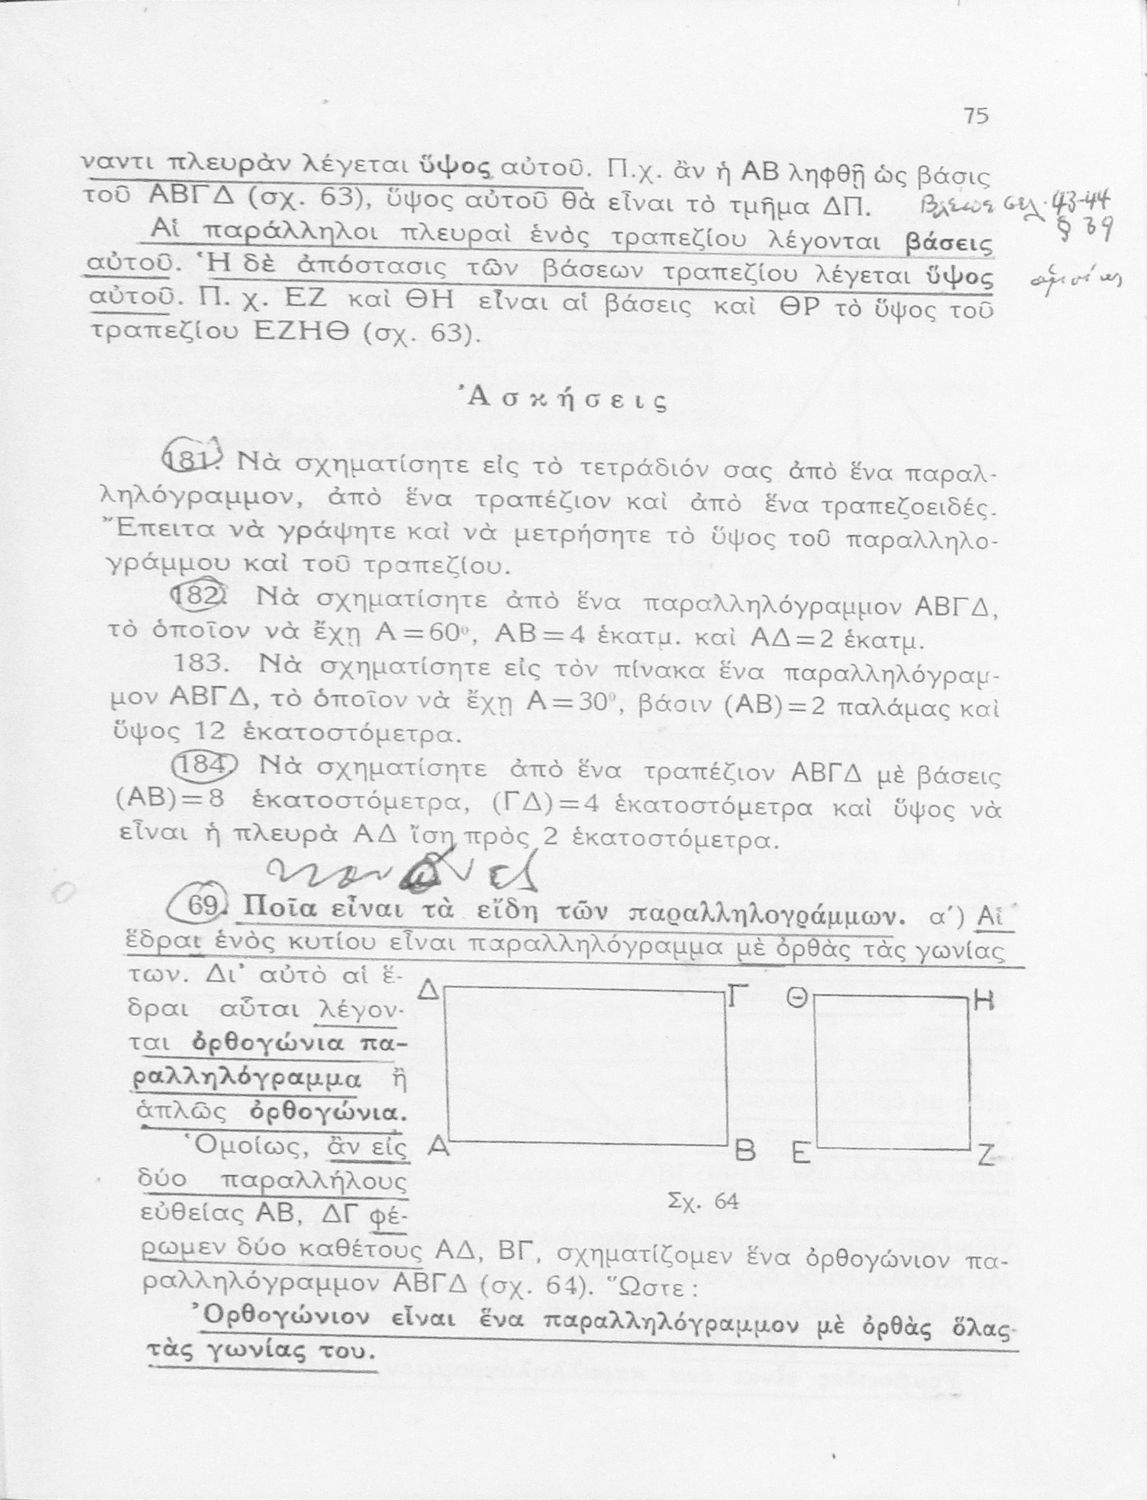 75
ναντι πλευρὰν λέγεται ὕψος αὐτοῦ. Π.χ. ἂν ἡ ΑΒ ληφθῇ ὡς βάσις
τοῦ ΑΒΓΔ (σχ. 63), ὕψος αὐτοῦ θὰ εἶναι τὸ τμῆμα ΔΠ.
Βλέπε σελ. 43-44
§ 39
Αἱ παράλληλοι πλευραὶ ἑνὸς τραπεζίου λέγονται βάσεις
αὐτοῦ. Ἡ δὲ ἀπόστασις τῶν βάσεων τραπεζίου λέγεται ὕψος
ὁμοίως
αὐτοῦ. Π. χ. ΕΖ καὶ ΘΗ εἶναι αἱ βάσεις καὶ ΘΡ τὸ ὕψος τοῦ
τραπεζίου ΕΖΗΘ (σχ. 63).
Ἀσκήσεις
181. Νὰ σχηματίσητε εἰς τὸ τετράδιόν σας ἀπὸ ἕνα παραλ-
ληλόγραμμον, ἀπὸ ἕνα τραπέζιον καὶ ἀπὸ ἕνα τραπεζοειδές.
Ἔπειτα νὰ γράψητε καὶ νὰ μετρήσητε τὸ ὕψος τοῦ παραλληλο-
γράμμου καὶ τοῦ τραπεζίου.
182. Νὰ σχηματίσητε ἀπὸ ἕνα παραλληλόγραμμον ΑΒΓΔ,
τὸ ὁποῖον νὰ ἔχῃ Α=60⁰, ΑΒ=4 ἑκατμ. καὶ ΑΔ=2 ἑκατμ.
183. Νὰ σχηματίσητε εἰς τὸν πίνακα ἕνα παραλληλόγραμ-
μον ΑΒΓΔ, τὸ ὁποῖον νὰ ἔχῃ Α=30⁰, βάσιν (ΑΒ)=2 παλάμας καὶ
ὕψος 12 ἑκατοστόμετρα.
184. Νὰ σχηματίσητε ἀπὸ ἕνα τραπέζιον ΑΒΓΔ μὲ βάσεις
(ΑΒ)=8 ἑκατοστόμετρα, (ΓΔ)=4 ἑκατοστόμετρα καὶ ὕψος νὰ
εἶναι ἡ πλευρὰ ΑΔ ἴση πρὸς 2 ἑκατοστόμετρα.
69. Ποῖα εἶναι τὰ εἴδη τῶν παραλληλογράμμων. α΄) Αἱ
ἕδραι ἑνὸς κυτίου εἶναι παραλληλόγραμμα μὲ ὀρθὰς τὰς γωνίας
των. Δι' αὐτὸ αἱ ἕ-
δραι αὗται λέγον-
ται ὀρθογώνια πα-
ραλληλόγραμμα ἢ
ἁπλῶς ὀρθογώνια.
Ὁμοίως, ἂν εἰς
δύο παραλλήλους
εὐθείας ΑΒ, ΔΓ φέ-
Δ Γ Θ Η
Α Β Ε Ζ
Σχ. 64
ρωμεν δύο καθέτους ΑΔ, ΒΓ, σχηματίζομεν ἕνα ὀρθογώνιον πα-
ραλληλόγραμμον ΑΒΓΔ (σχ. 64). Ὥστε :
Ὀρθογώνιον εἶναι ἕνα παραλληλόγραμμον μὲ ὀρθὰς ὅλας
τὰς γωνίας του.